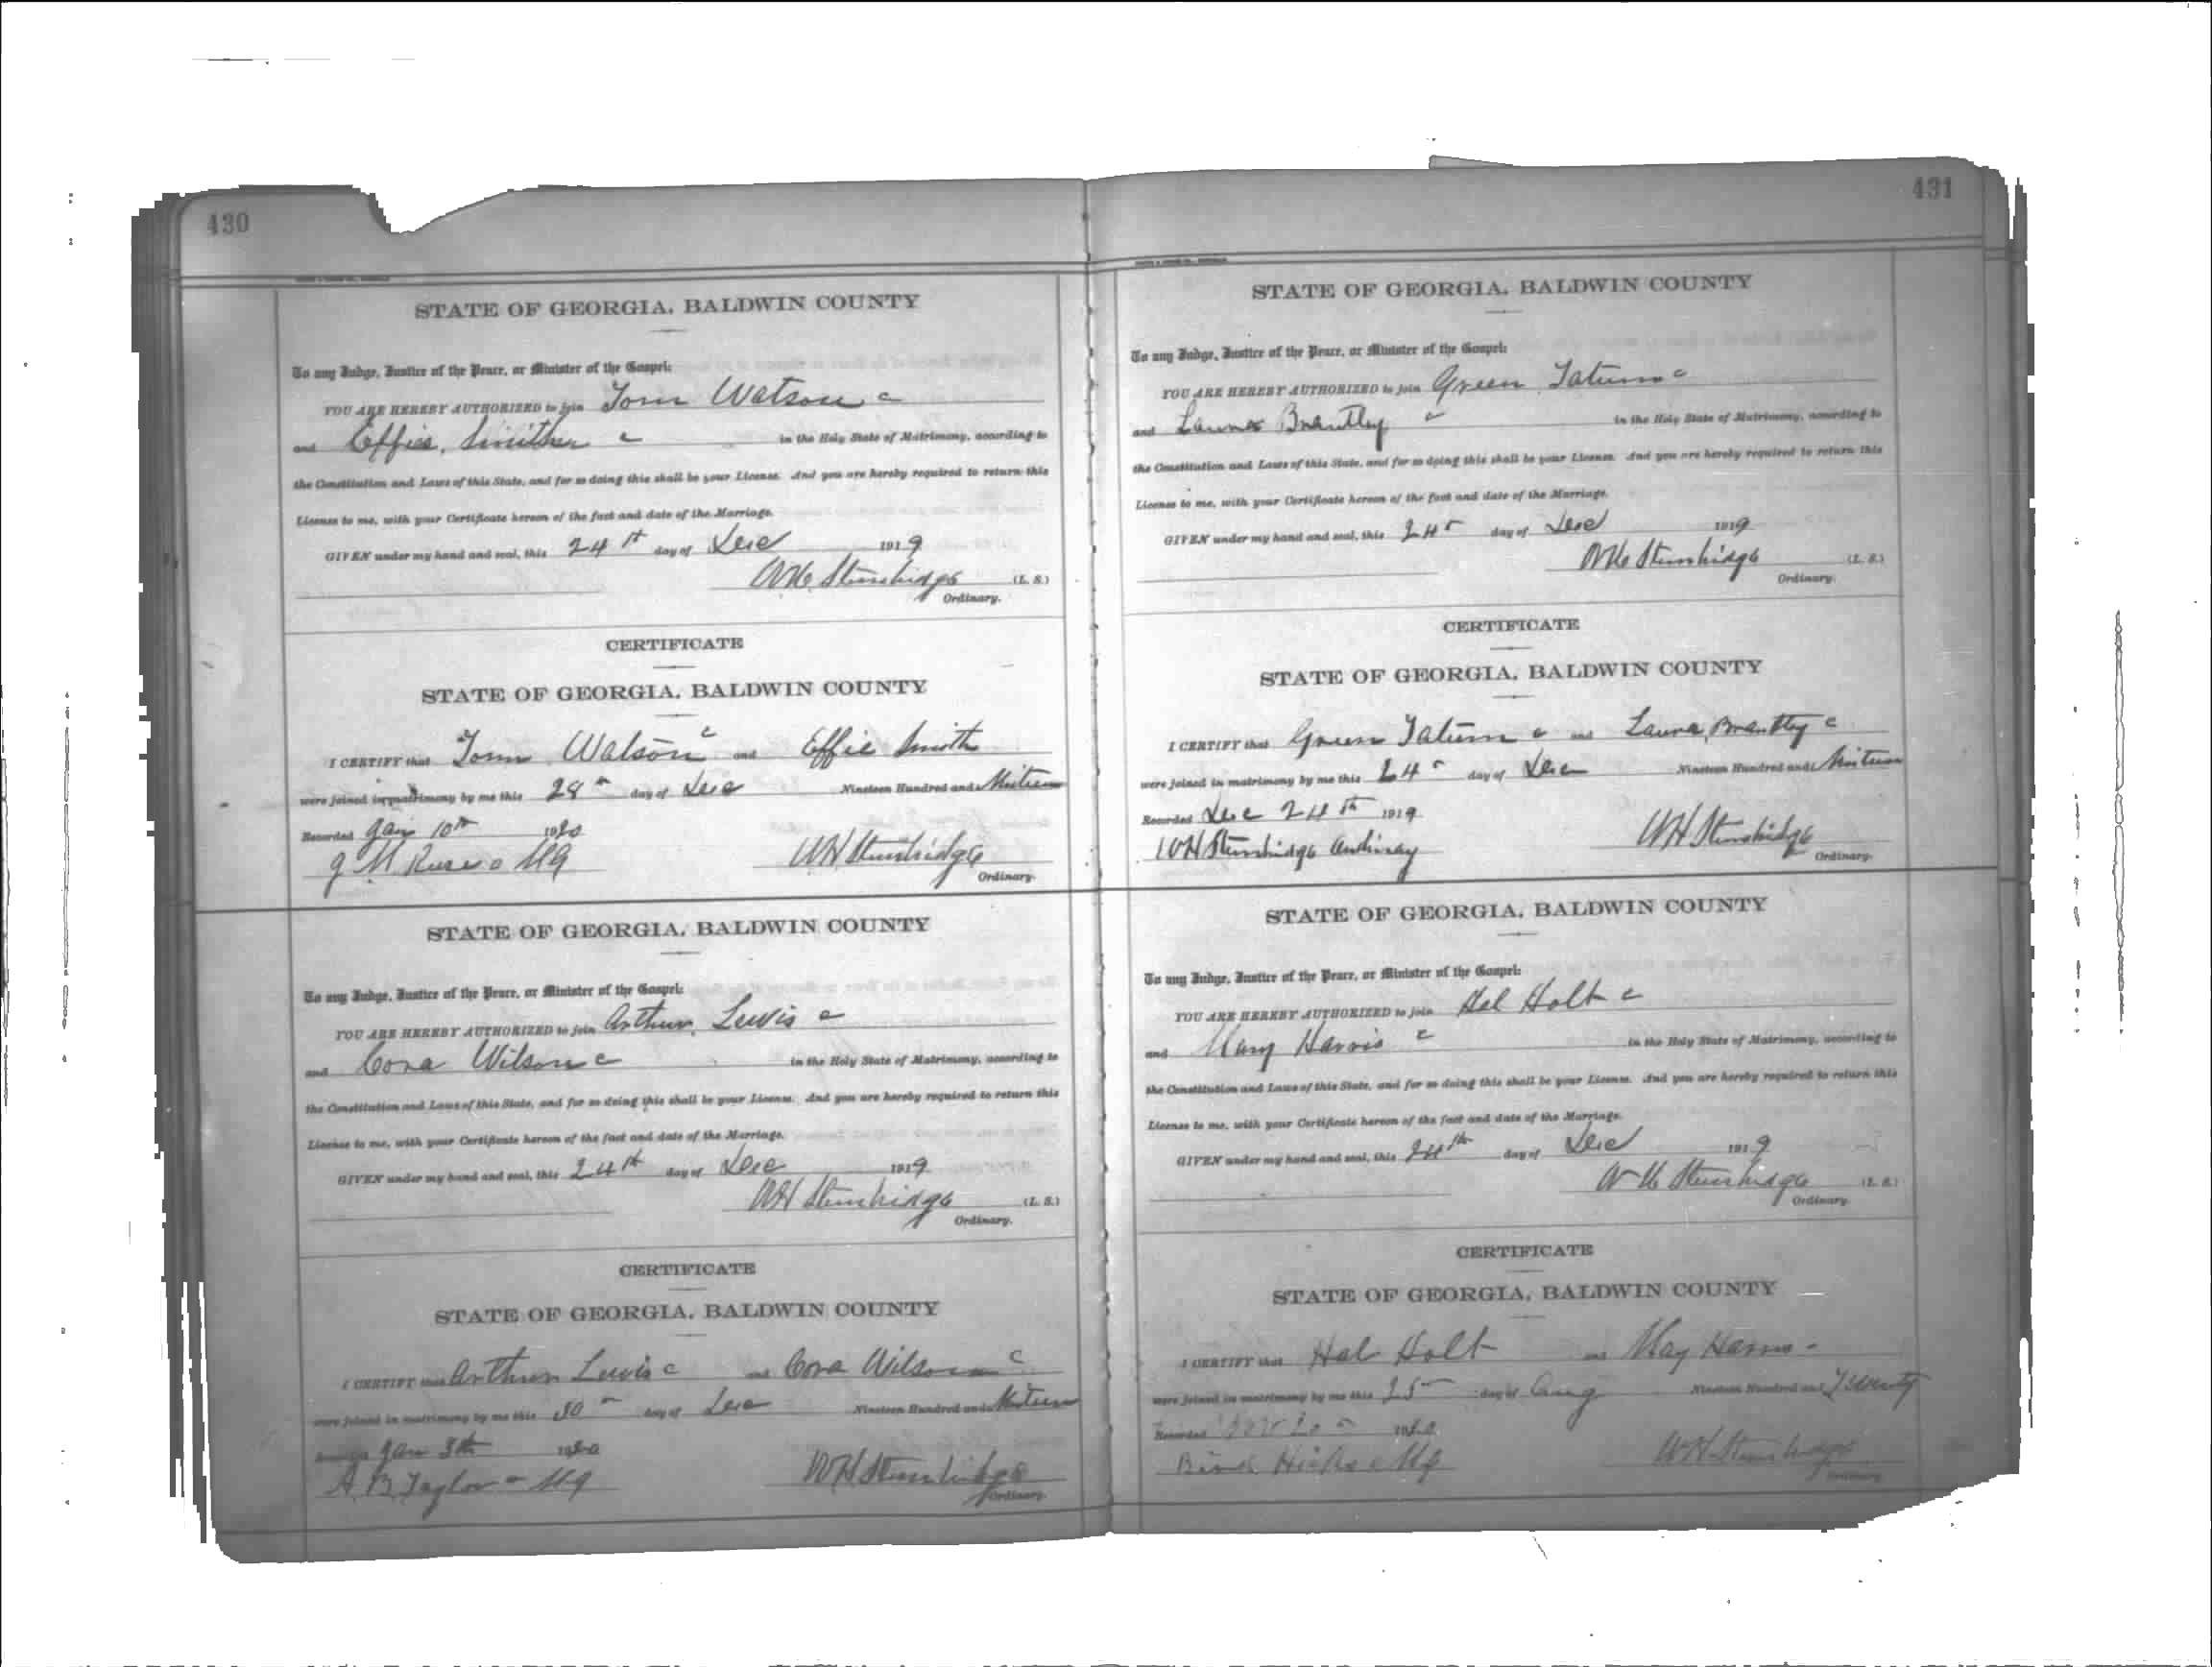 430
STATE OF GEORGIA, BALDWIN COUNTY
To any Judge, Justice of the Peace, or Minister of the Gospel:
YOU ARE HEREBY AUTHORIZED to join Tom Watson c
and Effie Smith c in the Holy State of Matrimony, according to
the Constitution and Laws of this State, and for so doing this shall be your License. And you are hereby required to return this
License to me, with your Certificate hereon of the fact and date of the Marriage.
GIVEN under my hand and seal, this 24th day of Dec 1919
WH Stembridge (L. S.)
Ordinary.
CERTIFICATE
STATE OF GEORGIA, BALDWIN COUNTY
I CERTIFY that Tom Watson c and Effie Smith
were joined in matrimony by me this 28th day of Dec Nineteen Hundred and Nineteen
Recorded Jan 10th 1920
J M MG WH Stembridge
Ordinary.
STATE OF GEORGIA, BALDWIN COUNTY
To any Judge, Justice of the Peace, or Minister of the Gospel:
YOU ARE HEREBY AUTHORIZED to join Arthur Lewis c
and Cora Wilson c in the Holy State of Matrimony, according to
the Constitution and Laws of this State, and for so doing this shall be your License. And you are hereby required to return this
License to me, with your Certificate hereon of the fact and date of the Marriage.
GIVEN under my hand and seal, this 24th day of Dec 1919
WH Stembridge (L. S.)
Ordinary.
CERTIFICATE
STATE OF GEORGIA, BALDWIN COUNTY
I CERTIFY that Arthur Lewis c and Cora Wilson c
were joined in matrimony by me this 30th day of Dec Nineteen Hundred and Nineteen
Recorded Jan 5th 1920
A B Taylor c MG WH Stembridge
Ordinary.
431
STATE OF GEORGIA, BALDWIN COUNTY
To any Judge, Justice of the Peace, or Minister of the Gospel:
YOU ARE HEREBY AUTHORIZED to join Green Tatum c
and Laura Brantley c in the Holy State of Matrimony, according to
the Constitution and Laws of this State, and for so doing this shall be your License. And you are hereby required to return this
License to me, with your Certificate hereon of the fact and date of the Marriage.
GIVEN under my hand and seal, this 24th day of Dec 1919
WH Stembridge (L. S.)
Ordinary.
CERTIFICATE
STATE OF GEORGIA, BALDWIN COUNTY
I CERTIFY that Green Tatum c and Laura Brantley c
were joined in matrimony by me this 24th day of Dec Nineteen Hundred and Nineteen
Recorded Dec 24th 1919
WH Stembridge Ordinary WH Stembridge
Ordinary.
STATE OF GEORGIA, BALDWIN COUNTY
To any Judge, Justice of the Peace, or Minister of the Gospel:
YOU ARE HEREBY AUTHORIZED to join Hal Holt c
and Mary Harris c in the Holy State of Matrimony, according to
the Constitution and Laws of this State, and for so doing this shall be your License. And you are hereby required to return this
License to me, with your Certificate hereon of the fact and date of the Marriage.
GIVEN under my hand and seal, this 24th day of Dec 1919
WH Stembridge (L. S.)
Ordinary.
CERTIFICATE
STATE OF GEORGIA, BALDWIN COUNTY
I CERTIFY that Hal Holt and May Harris
were joined in matrimony by me this 25th day of Aug Nineteen Hundred and Twenty
Recorded 1920
Hicks c MG WH Stembridge
Ordinary.